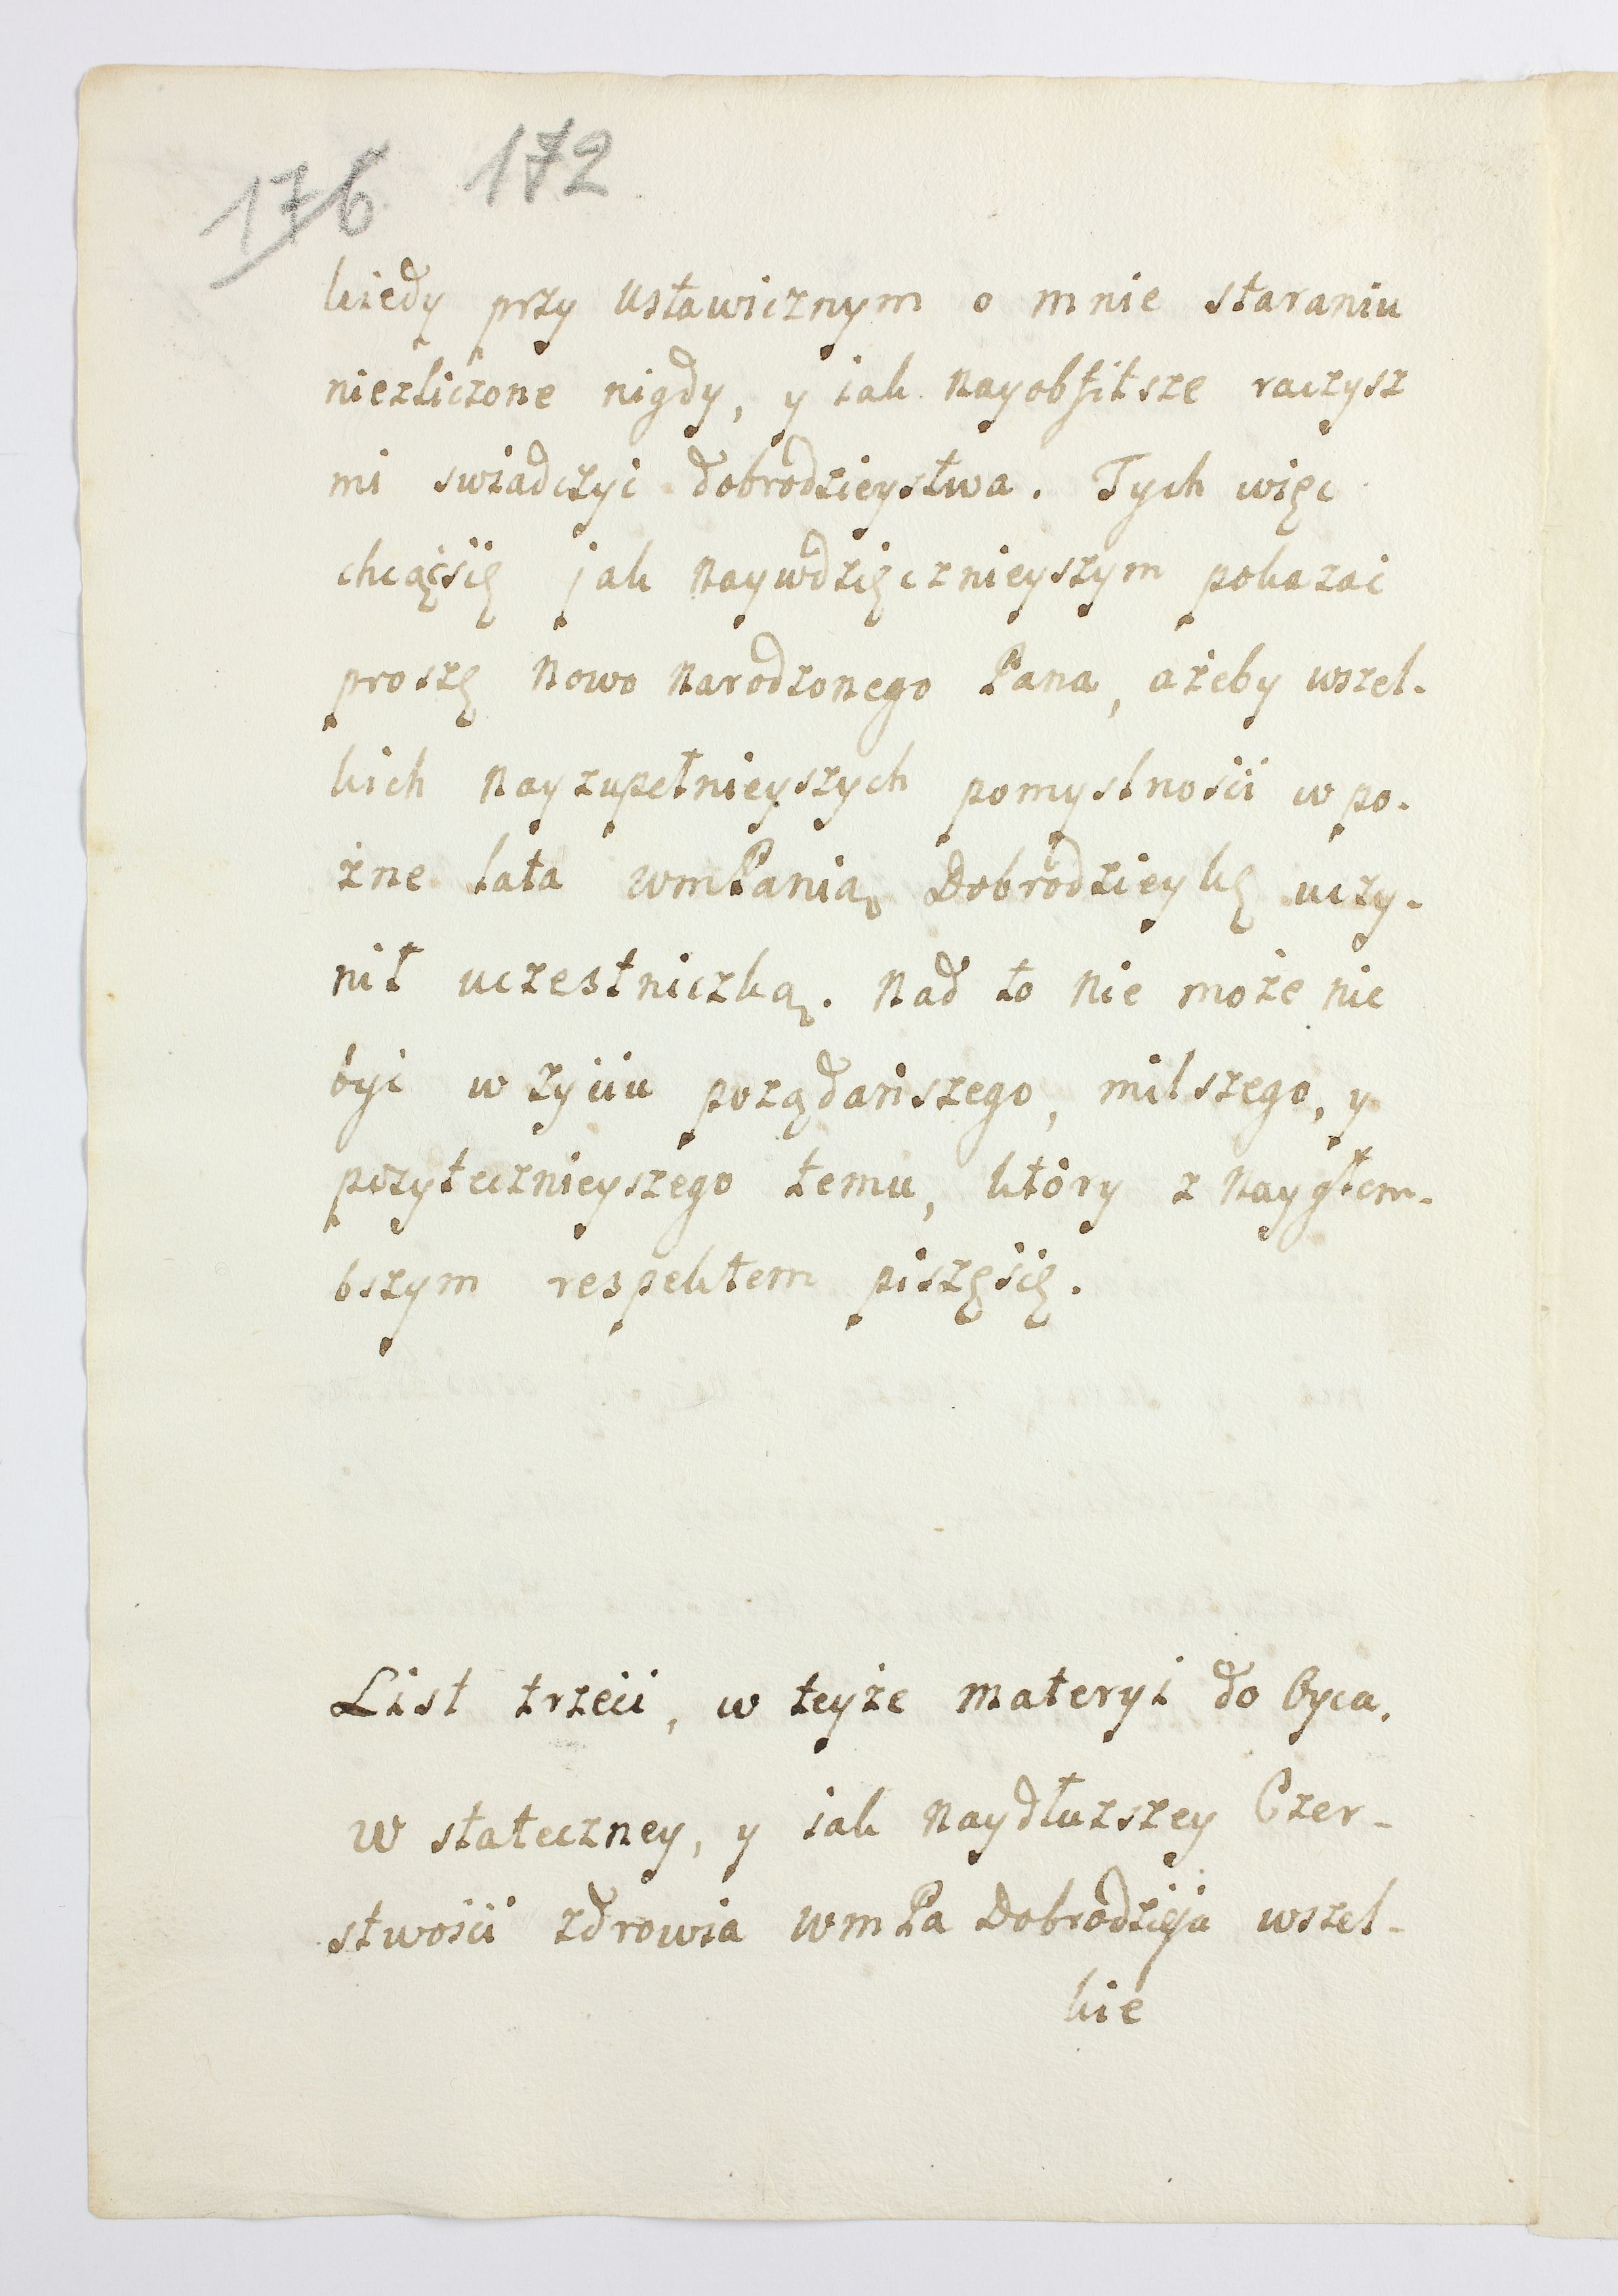 176 172
kiedy przy ustawicznym o mnie staraniu
niezliczone nigdy, y iak nayobfitsze raczysz
mi swiadczyć dobrodzieystwa. Tych więc
chcącsię jak naywdzięcznieyszym pokazać
proszę nowo narodzonego Pana, ażeby wszel-
kich nayzupełnieyszych pomyslności w po-
zne lata wmPanią Dobrodzieykę uczy-
nił uczestniczką. Nad to nie może nic
być w życiu pożądańszego, milszego, y
pożytecznieyszego temu, który z naygłem-
bszym respektem piszęsię.
List trzeci, w teyże materyi do Oyca.
W stateczney, y iak naydłuzszey Czer-
stwości zdrowia wmPa Dobrodzieja wszel-
kie